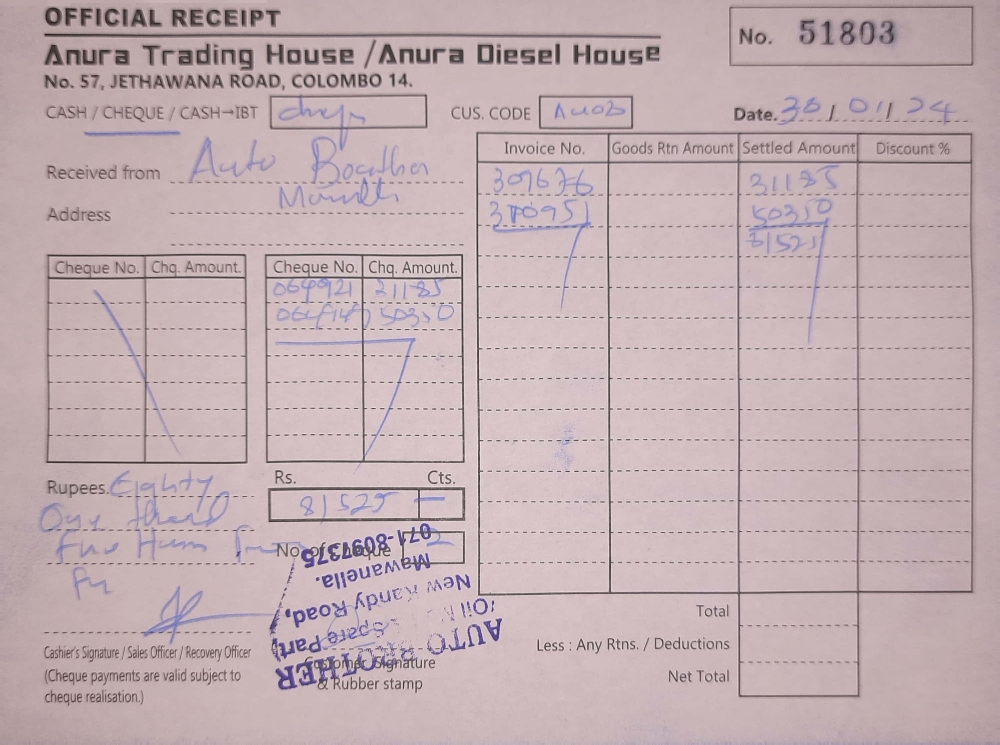 OFFICIAL RECEIPT
No. 51803
Anura Trading House / Anura Diesel House
No. 57, JETHAWANA ROAD, COLOMBO 14.
CASH / CHEQUE / CASH→IBT
CUS. CODE
Date. 30/01/24
Received from Auto
Address
Invoice No. Goods Rtn Amount Settled Amount Discount %
309676 31185
310951 50350
81525
Cheque No. Chq. Amount. Cheque No. Chq. Amount.
064921 31185
50350
Rupees. Eighty
One
Rs. Cts.
81525 —
No. of Cheque 2
AUTO BROTHER
Spare Part,
New Kandy Road,
Mawanella.
071-8097375
Cashier's Signature / Sales Officer / Recovery Officer
(Cheque payments are valid subject to
cheque realisation.)
Customer Signature
& Rubber stamp
Total
Less : Any Rtns. / Deductions
Net Total